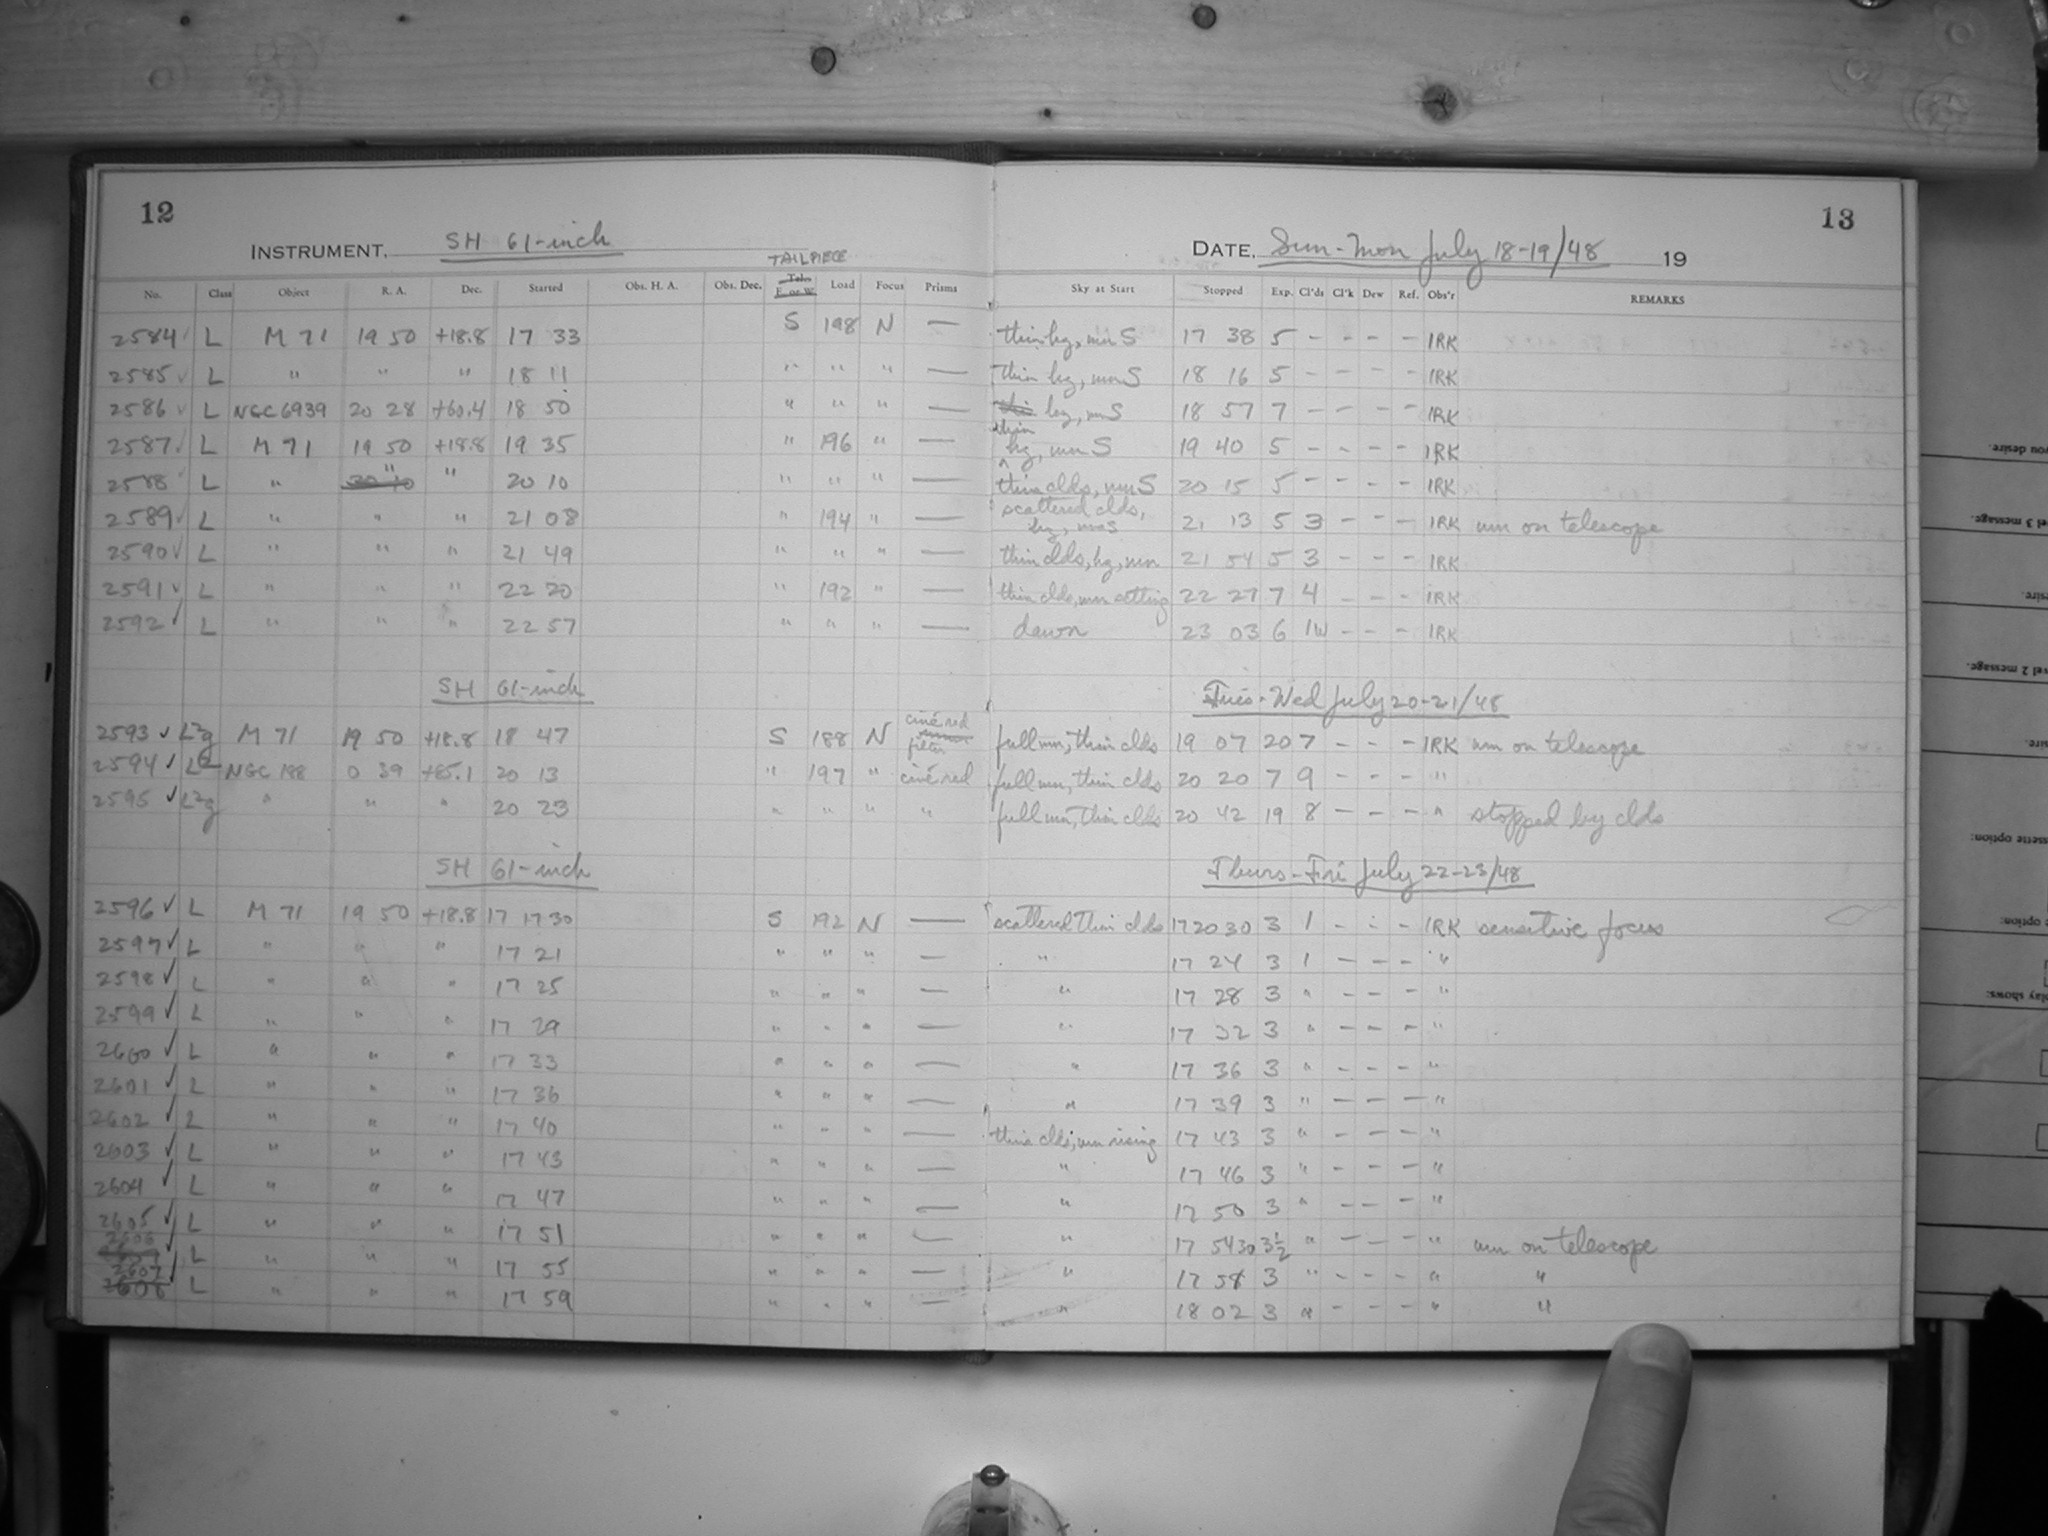 12
13
INSTRUMENT, SH 61-inch
DATE, Sun-Mon July 18-19/48 19
TAILPIECE
No. Class Object R. A. Dec. Started Obs. H. A. Obs. Dec. Tel. E. or W. Load Focus Prisms Sky at Start Stopped Exp. Cl'ds Cl'k Dew Ref. Obs'r REMARKS
2584 ✓ L M 71 19 50 +18.8 17 33 S 198 N — thin hz, mn S 17 38 5 – – – – IRK
2585 ✓ L " " " 18 11 " " " — thin hz, mn S 18 16 5 – – – – IRK
2586 ✓ L NGC 6939 20 28 +60.4 18 50 " " " — hz, mn S 18 57 7 – – – – IRK
2587 ✓ L M 71 19 50 +18.8 19 35 " 196 " — thin hz, mn S 19 40 5 – – – – IRK
2588 ✓ L " " " 20 10 " " " — thin clds, mn S 20 15 5 – – – – IRK
2589 ✓ L " " " 21 08 " 194 " — scattered clds, hz, mn S 21 13 5 3 – – – IRK mn on telescope
2590 ✓ L " " " 21 49 " " " — thin clds, hz, mn 21 54 5 3 – – – IRK
2591 ✓ L " " " 22 20 " 192 " — thin clds, mn setting 22 27 7 4 – – – IRK
2592 ✓ L " " " 22 57 " " " — dawn 23 03 6 1W – – – IRK
SH 61-inch Tues-Wed July 20-21/48
2593 ✓ L2g M 71 19 50 +18.8 18 47 S 188 N ciné red filter full mn, thin clds 19 07 20 7 – – – IRK mn on telescope
2594 ✓ L2 NGC 188 0 39 +85.1 20 13 " 197 " ciné red full mn, thin clds 20 20 7 9 – – – "
2595 ✓ L2g " " " 20 23 " " " " full mn, thin clds 20 42 19 8 – – – " stopped by clds
SH 61-inch Thurs-Fri July 22-23/48
2596 ✓ L M 71 19 50 +18.8 17 17 30 S 192 N — scattered thin clds 17 20 30 3 1 – – – IRK sensitive focus
2597 ✓ L " " " 17 21 " " " — " 17 24 3 1 – – – "
2598 ✓ L " " " 17 25 " " " — " 17 28 3 " – – – "
2599 ✓ L " " " 17 29 " " " — " 17 32 3 " – – – "
2600 ✓ L " " " 17 33 " " " — " 17 36 3 " – – – "
2601 ✓ L " " " 17 36 " " " — " 17 39 3 " – – – "
2602 ✓ L " " " 17 40 " " " — thin clds, mn rising 17 43 3 " – – – "
2603 ✓ L " " " 17 43 " " " — " 17 46 3 " – – – "
2604 ✓ L " " " 17 47 " " " — " 17 50 3 " – – – "
2605 ✓ L " " " 17 51 " " " — " 17 54 30 3½ " – – – " mn on telescope
2606 ✓ L " " " 17 55 " " " — " 17 58 3 " – – – " "
2607 ✓ L " " " 17 59 " " " — " 18 02 3 " – – – " "